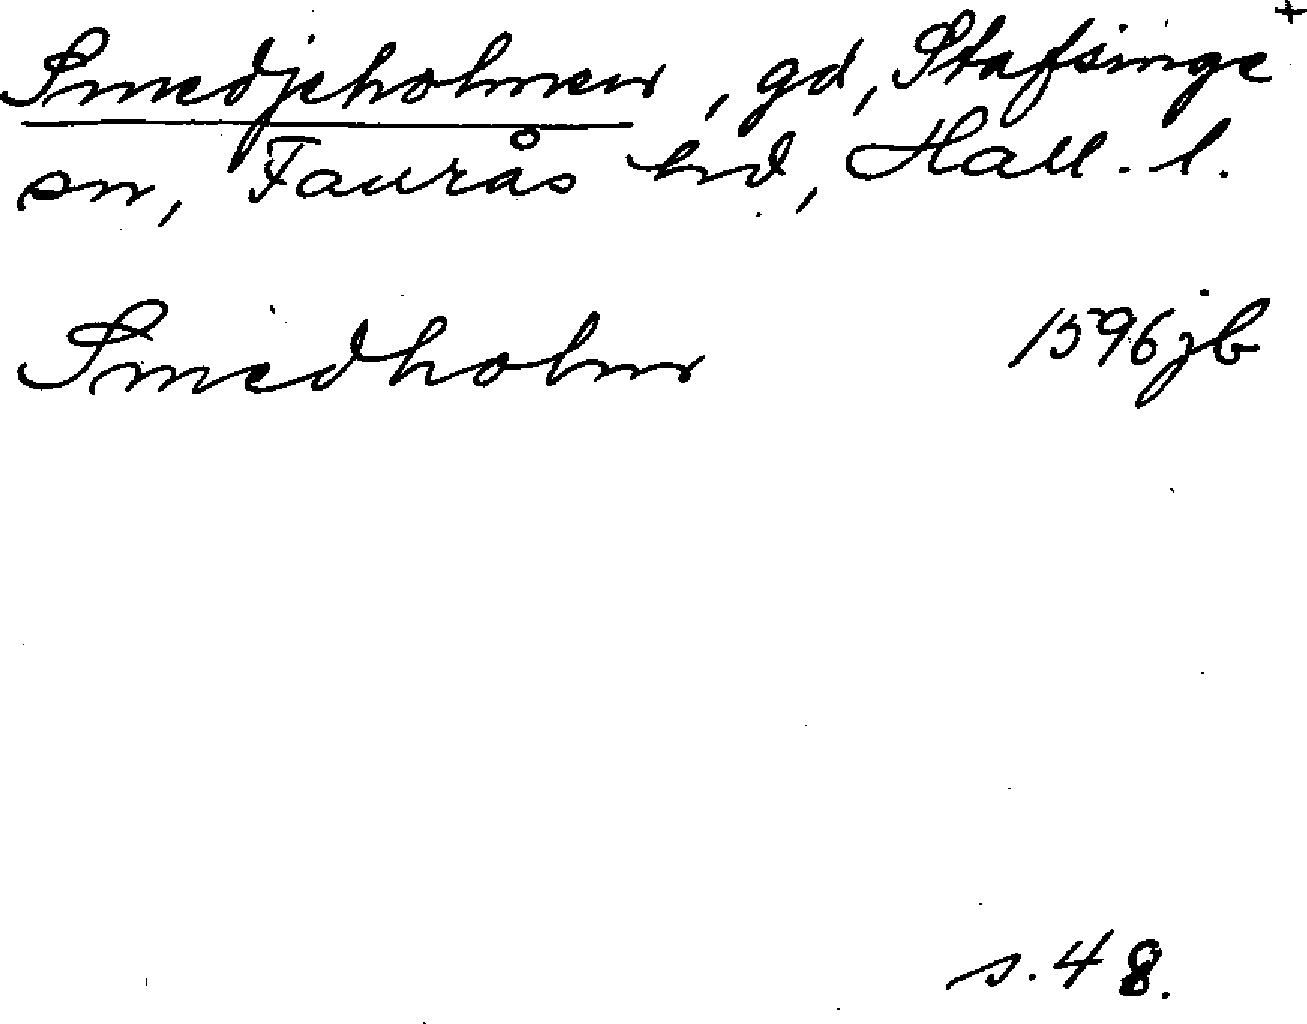 Smedjeholmen, gd, Stafsinge +
sn, Faurås hd, Hall. l.
Smedholm 1596 jb
s. 48.